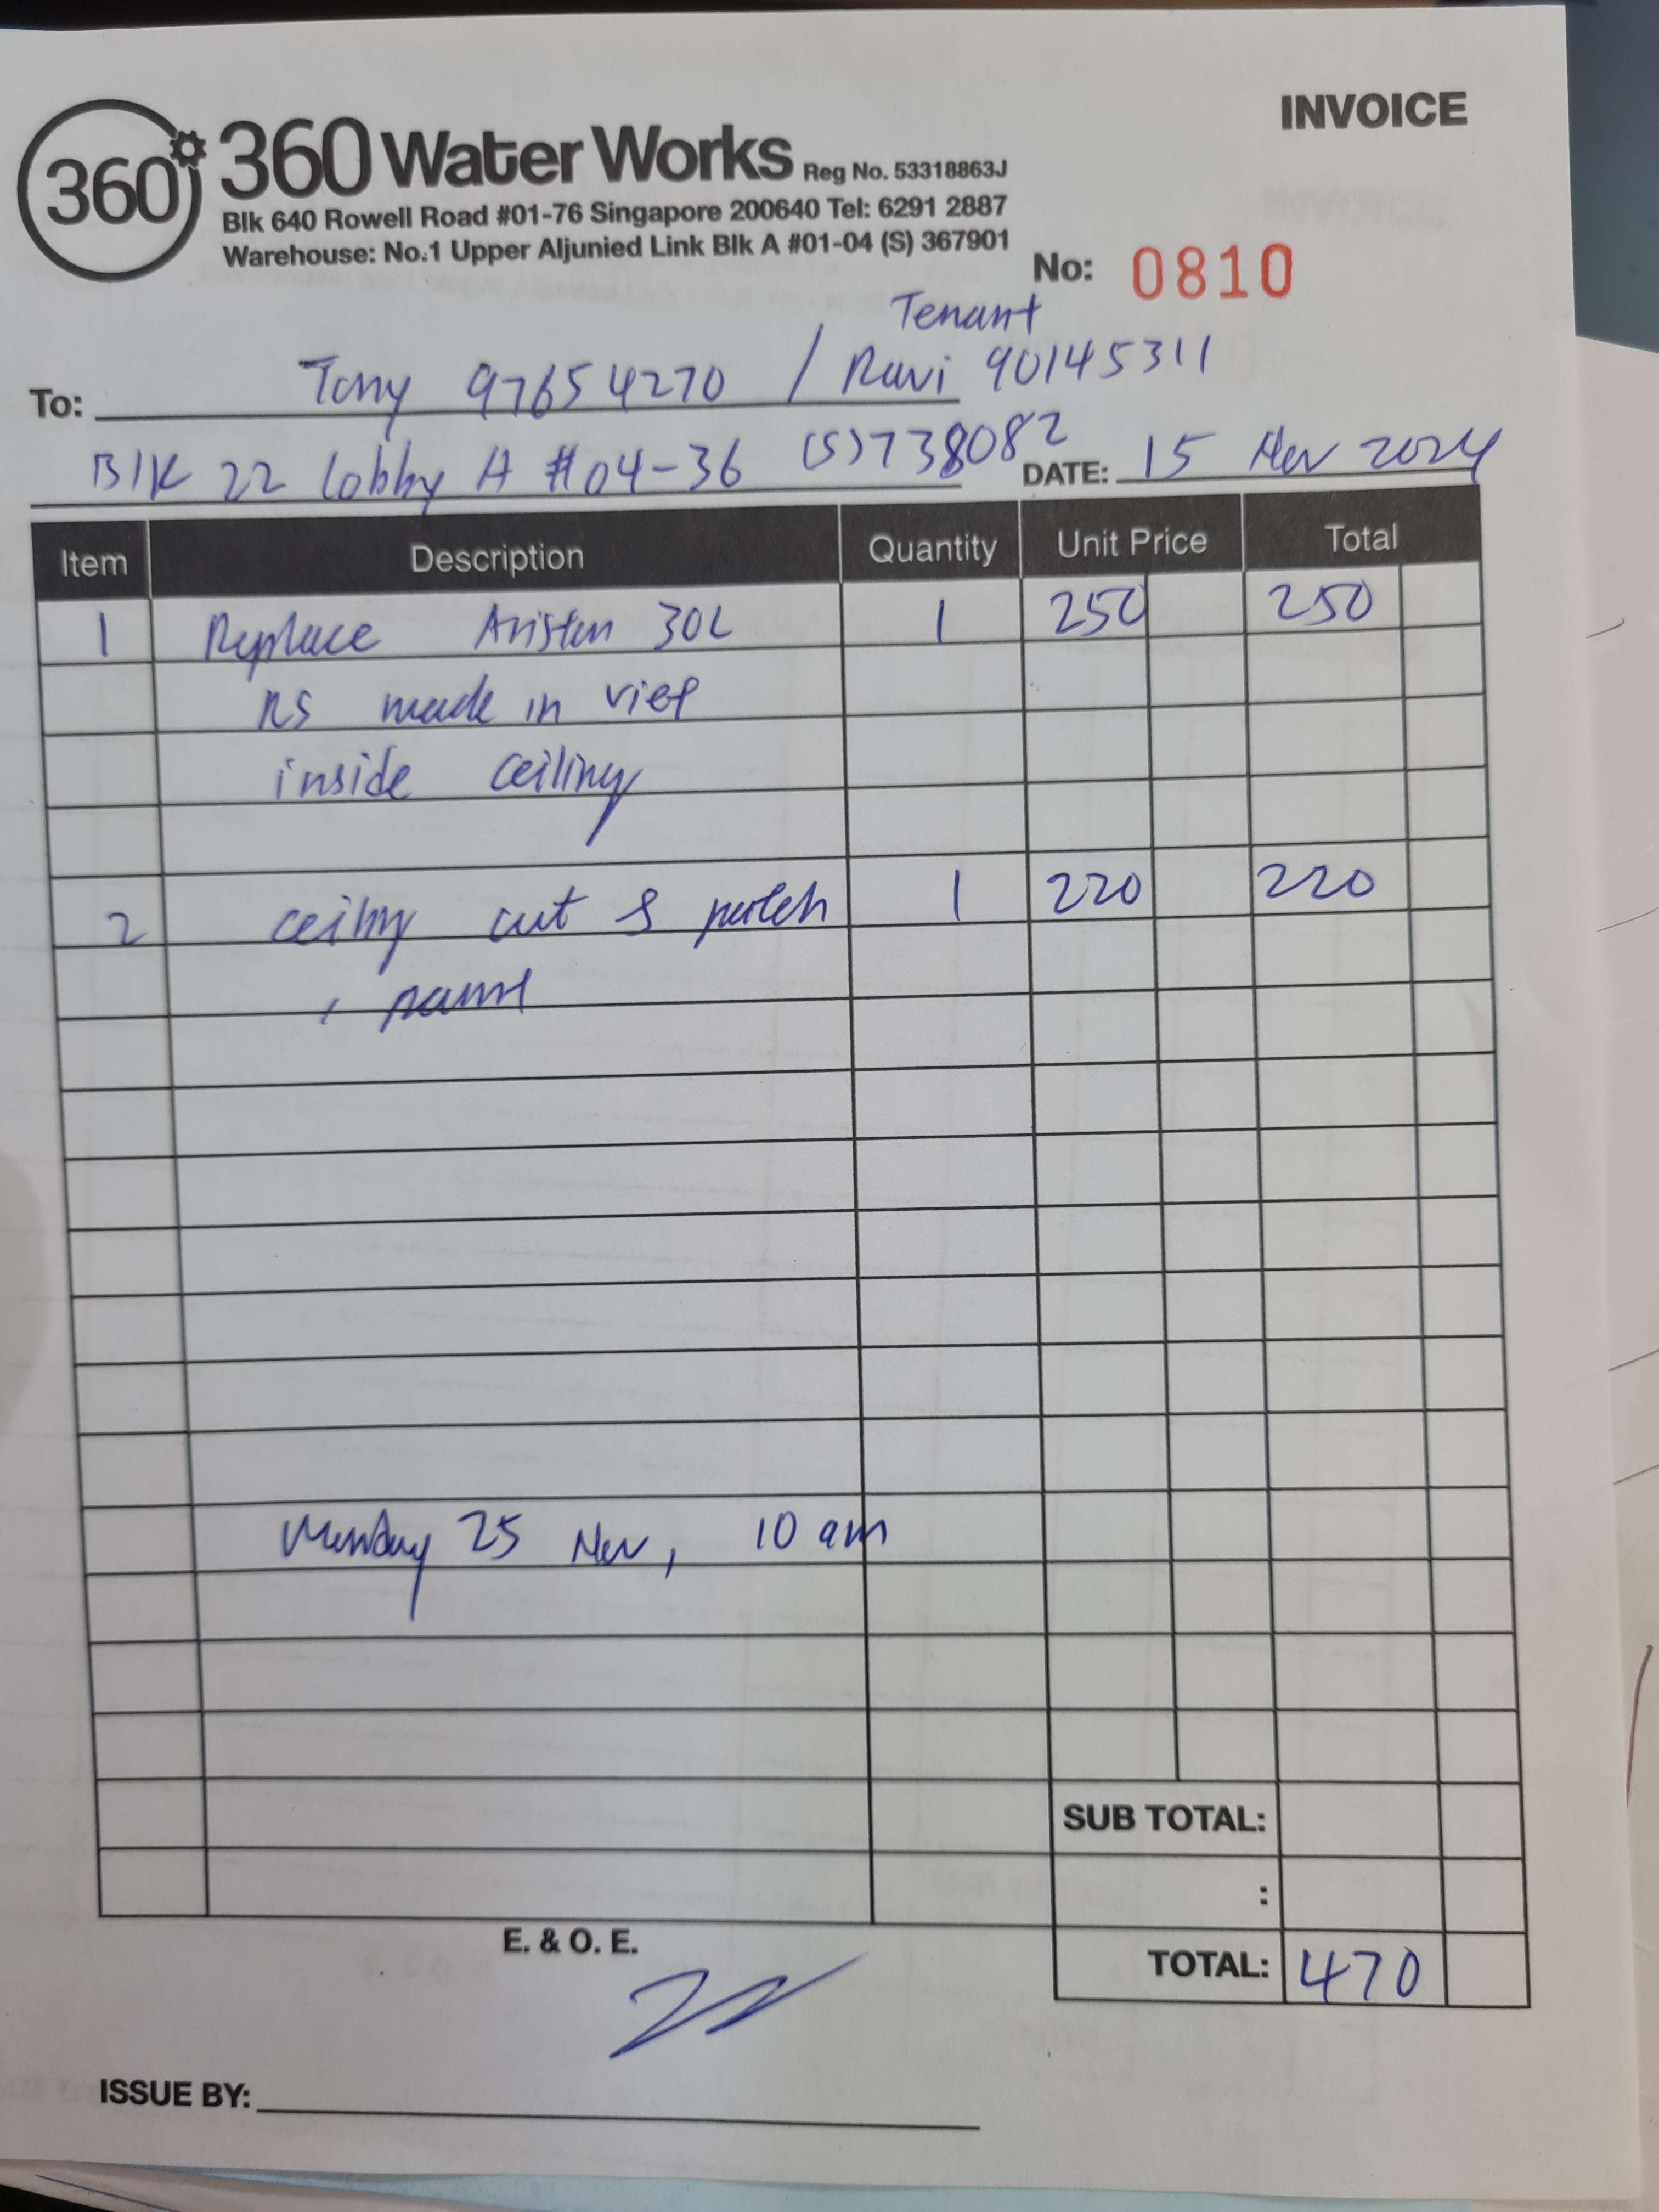 INVOICE
360
360 Water Works Reg No. 53318863J
Blk 640 Rowell Road #01-76 Singapore 200640 Tel: 6291 2887
Warehouse: No.1 Upper Aljunied Link Blk A #01-04 (S) 367901
No: 0810
Tenant
To: Tony 97654270 / Ravi 90145311
Blk 22 lobby A #04-36 (S)738082
DATE: 15 Nov 2024
Item Description Quantity Unit Price Total
1 Replace Ariston 30L 1 250 250
RS made in viet
inside ceiling
2 ceiling cut & patch 1 220 220
, paint
Monday 25 Nov, 10 am
SUB TOTAL:
:
E. & O. E.
TOTAL: 470
ISSUE BY: